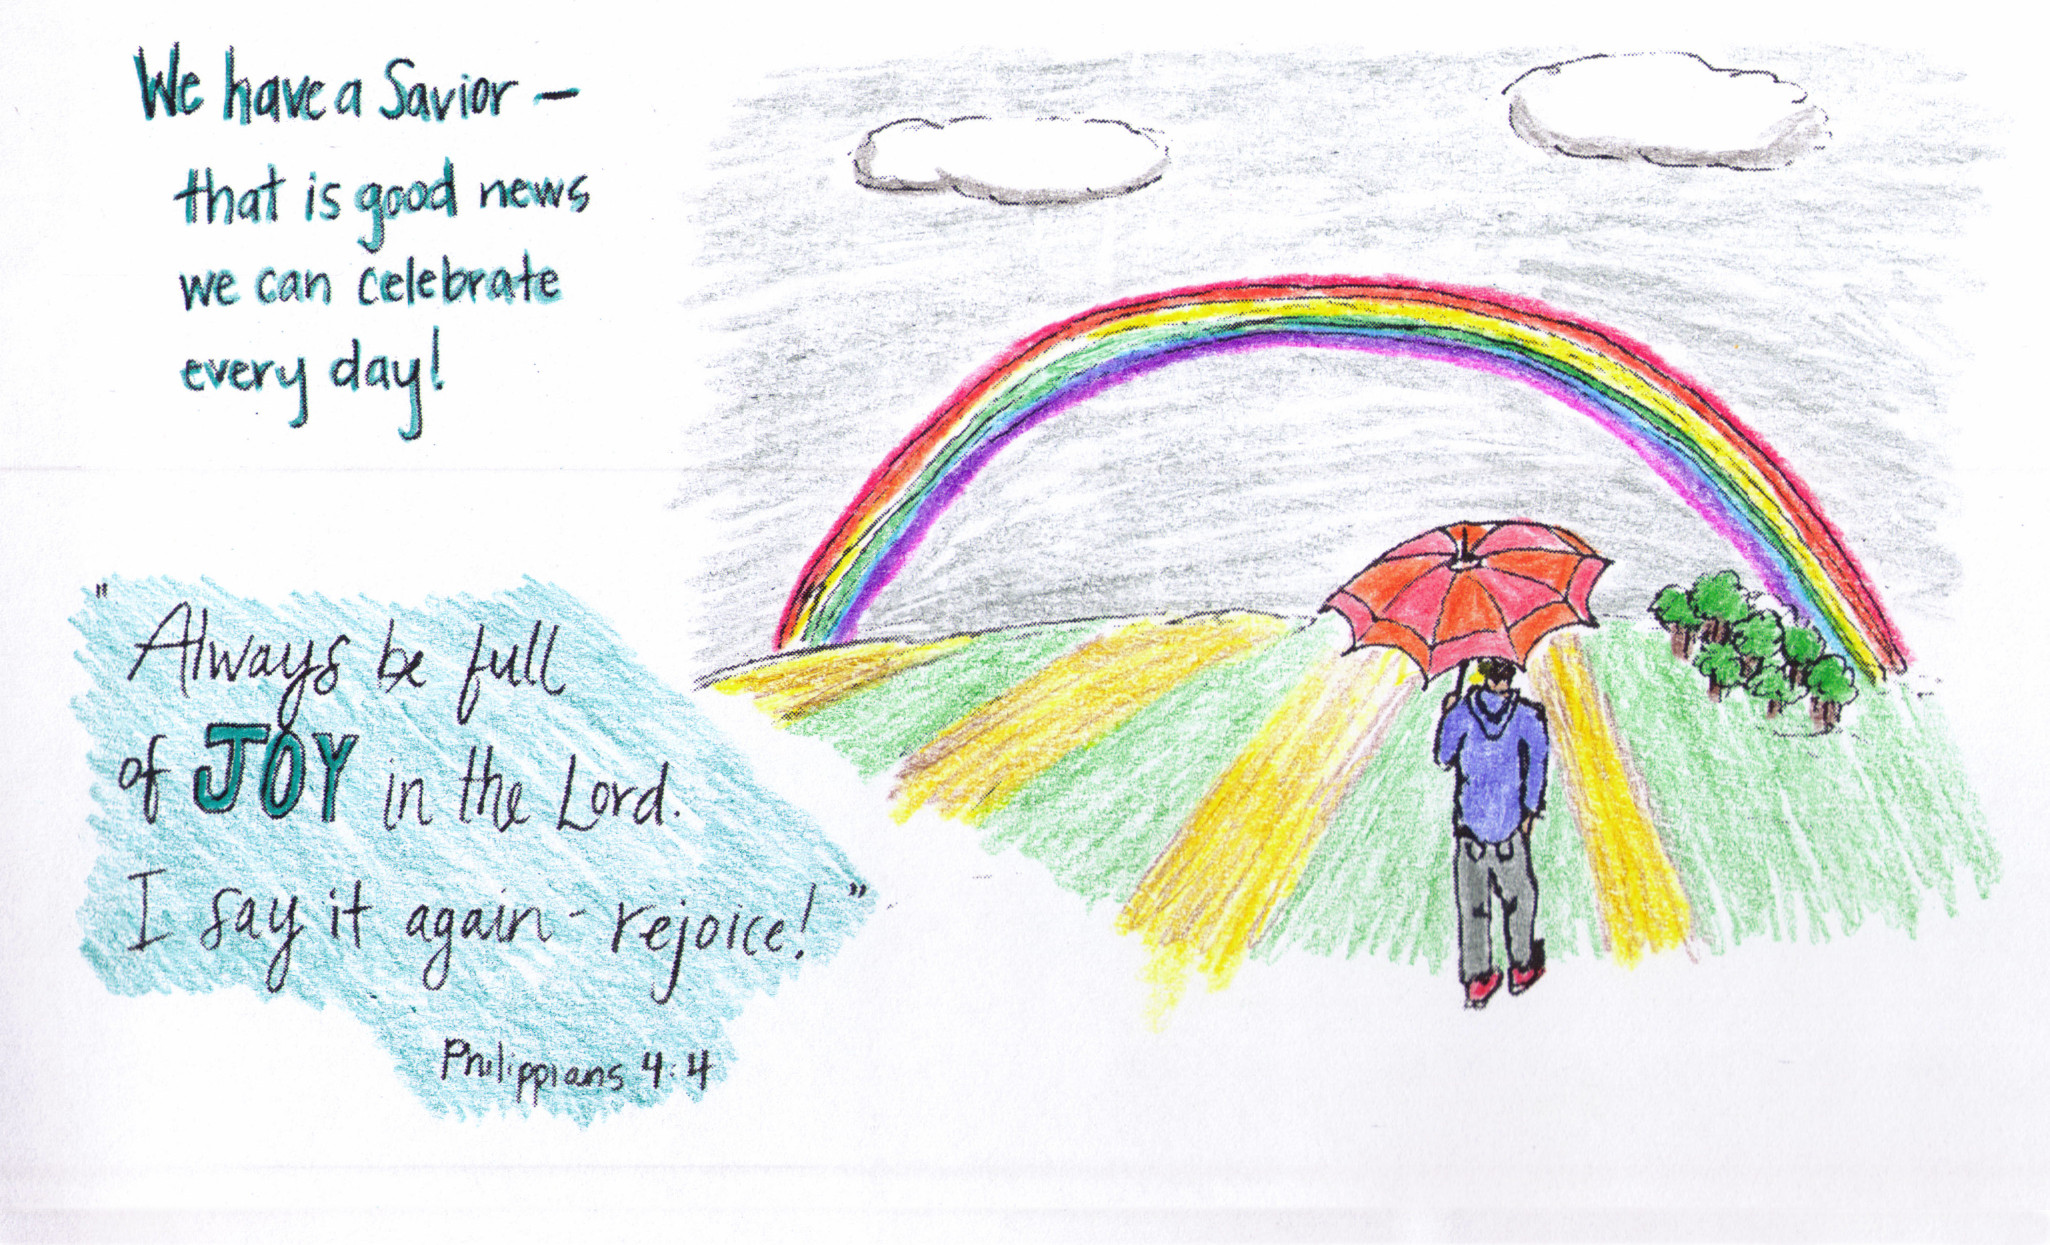 We have a Savior –
that is good news
we can celebrate
every day!
"Always be full
of JOY in the Lord.
I say it again - rejoice!"
Philippians 4:4